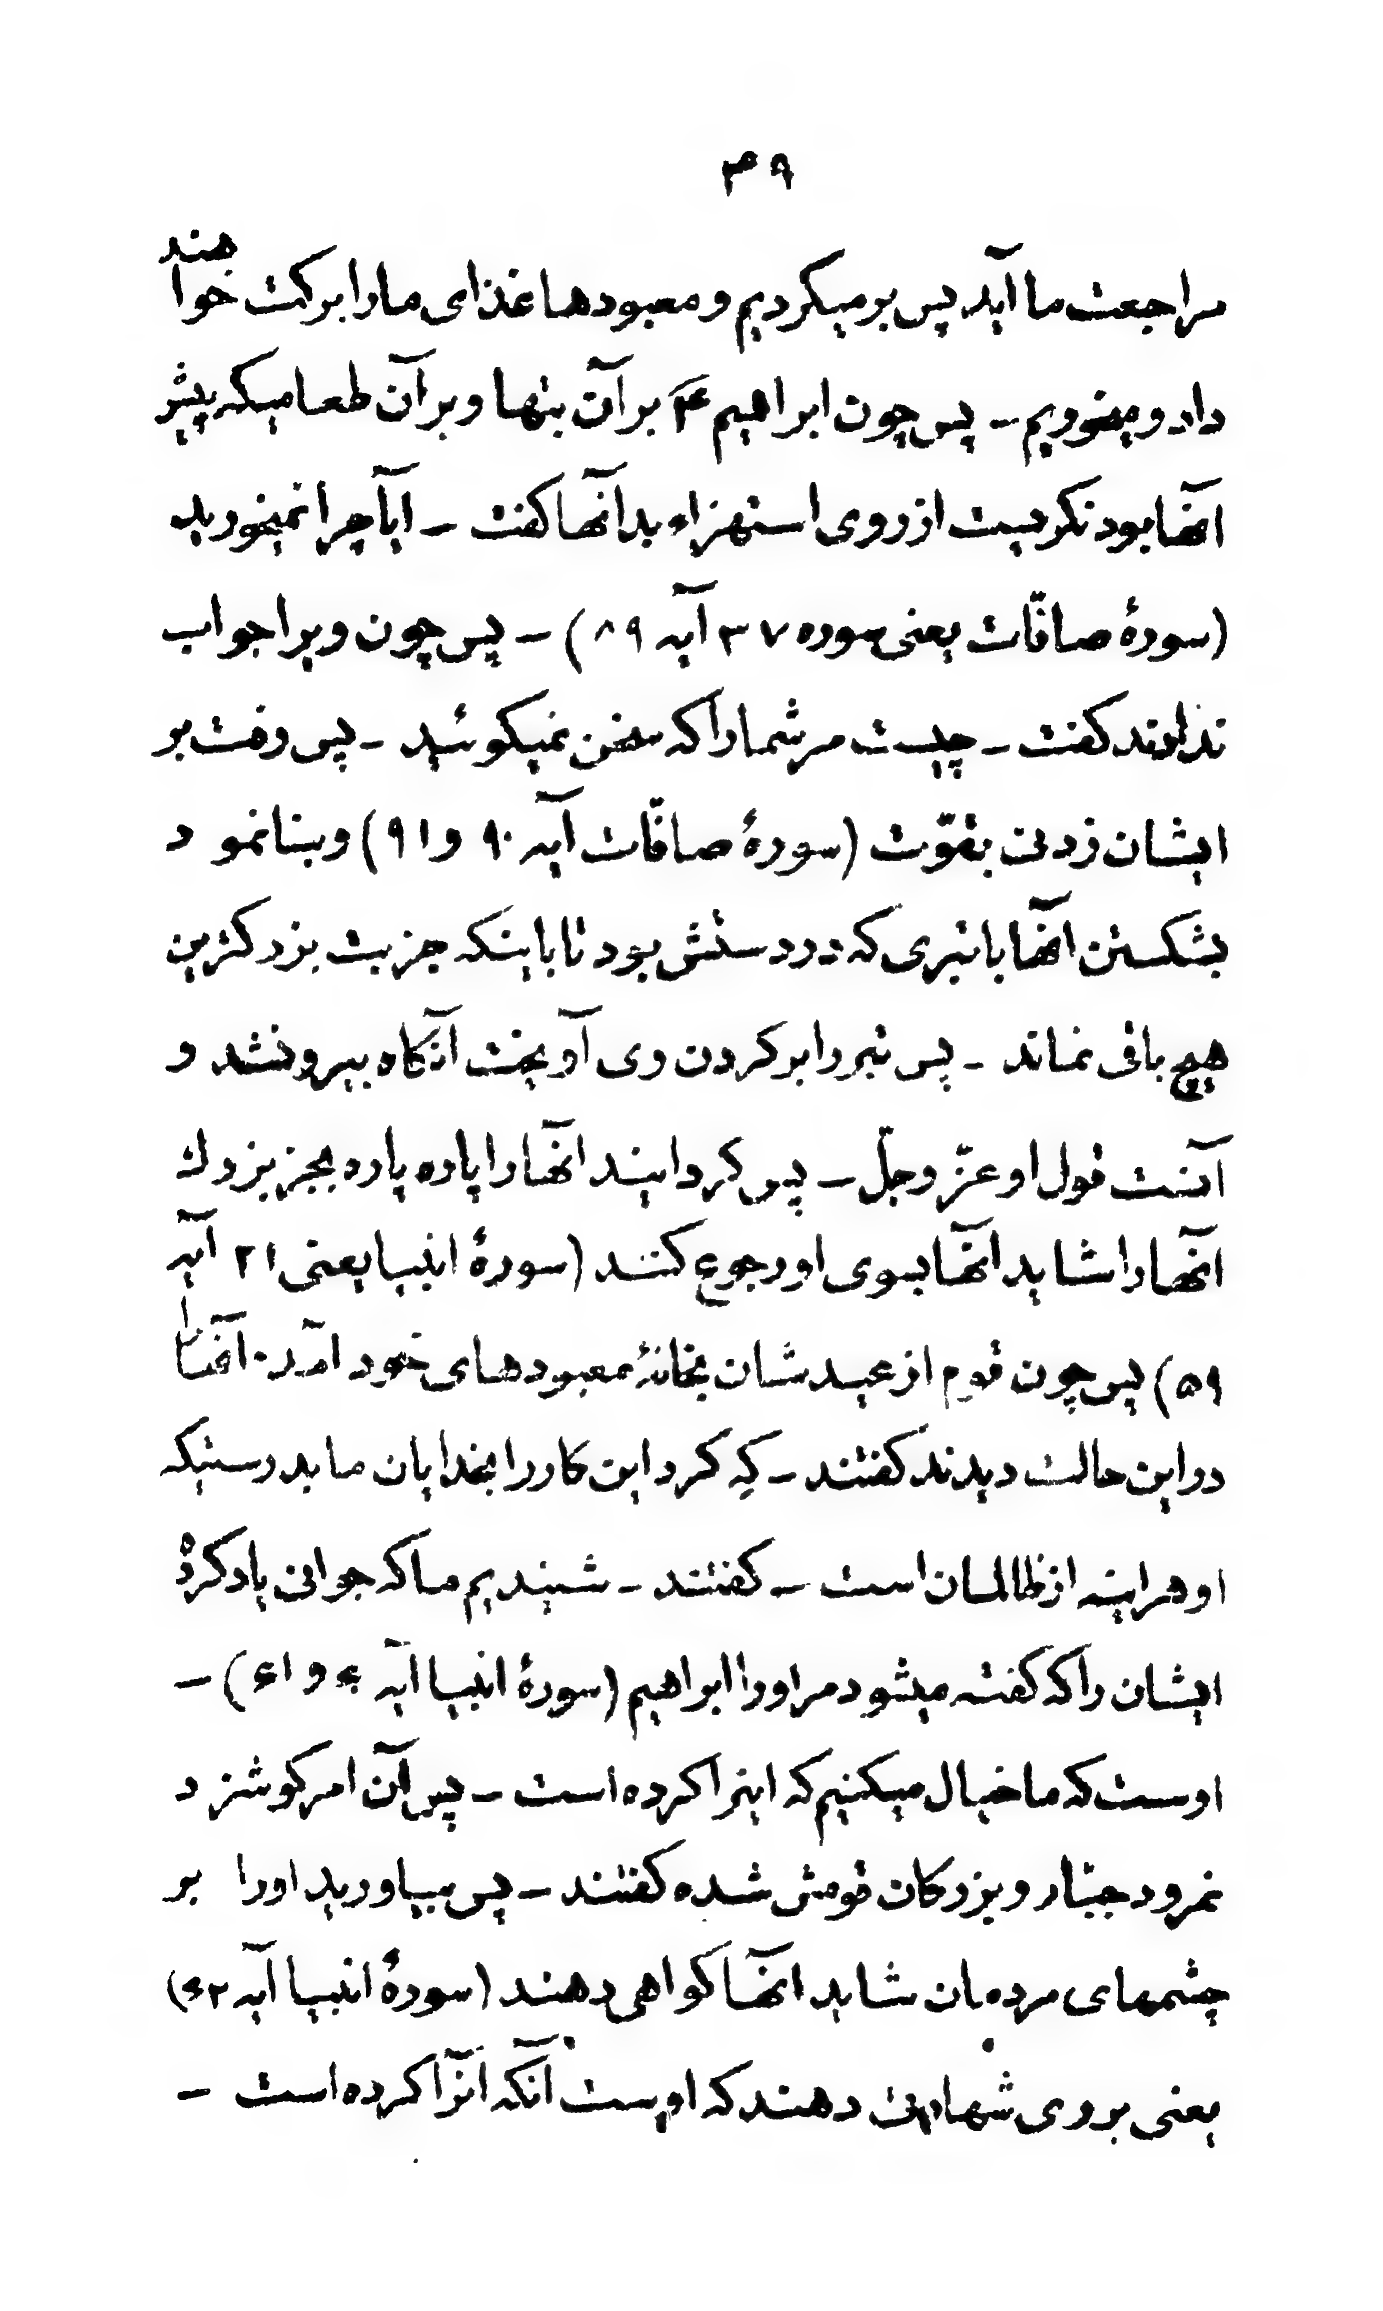 ۴۹
مراجعت ما آید پس برمیکردیم و معبودها غذای مارا برکت خواهند
داد و میخوریم – پس چون ابراهیم ع برآن بتها و برآن طعامیکه پیش
آنها بود نکریست از روی استهزاء بدانها کفت – ایا چرا نمیخورید
(سورهٔ صافّات یعنی سوره ۳۷ آیه ۸۹) – پس چون ویرا جواب
ندادند کفت – چیست مر شمارا که سخن نمیکوئید – پس رفت بر
ایشان زدنی بقوّت (سورهٔ صافّات آیه ۹۰ و ۹۱) و بنا نمود
بشکستن آنها با تبری که در دستش بود تا باینکه جز بت بزرکترین
هیچ باقی نماند – پس تبر را بر کردن وی آویخت آنکاه بیرون شد و
آنست قول او عزّ وجلّ – پس کردانید آنها را پاره پاره بجز بزرك
آنها را شاید آنها بسوی او رجوع کنند (سورهٔ انبیا یعنی ۲۱ آیه
۵۹) پس چون قوم از عید شان بخانهٔ معبودهای خود آمدند آنها را
در این حالت دیدند کفتند – کِه کرد این کار را بخدایان ما بدرستیکه
او هراینه از ظالمان است – کفتند – شنیدیم ما که جوانی یاد کرده
ایشان را که کفته میشود مر اورا ابراهیم (سورهٔ انبیا آیه ۶۰ و ۶۱) –
اوست که ما خیال میکنیم که اینرا کرده است – پس آن امر کوشزد
نمرود جبّار و بزرکان قومش شده کفتند – پس بیاورید اورا بر
چشمهای مردمان شاید آنها کواهی دهند (سورهٔ انبیا آیه ۶۲)
یعنی بروی شهادت دهند که اوست آنکه آنرا کرده است –